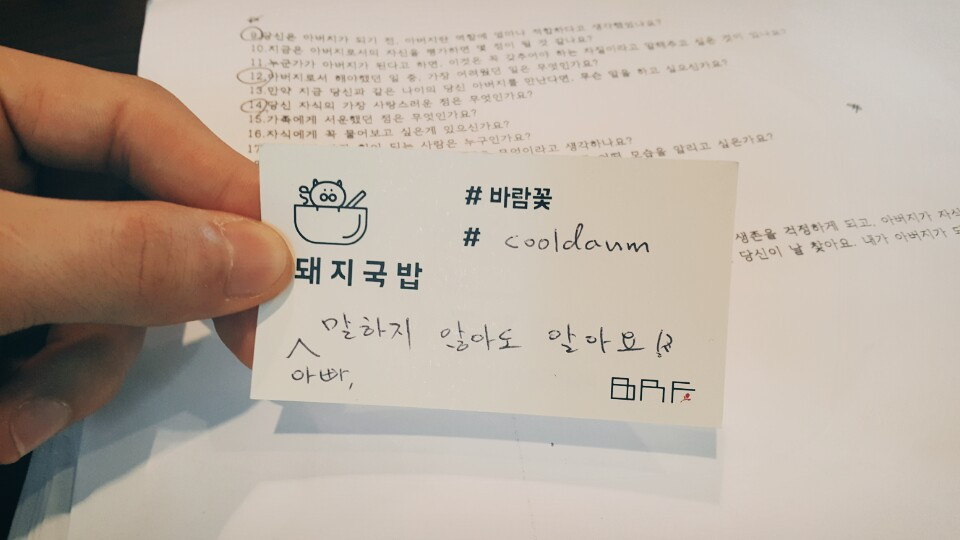 9.당신은 아버지가 되기 전, 아버지란 역할에 얼마나 적합하다고 생각했었나요?
10.지금은 아버지로서의 자신을 평가하면 몇 점이 될 것 같나요?
11.누군가가 아버지가 된다고 하면, 이것은 꼭 갖추어야 하는 자질이라고 말해주고 싶은 것이 있나요?
12.아버지로서 해야했던 일 중, 가장 어려웠던 일은 무엇인가요?
13.만약 지금 당신과 같은 나이의 당신 아버지를 만난다면, 무슨 말을 하고 싶으신가요?
14.당신 자식의 가장 사랑스러운 점은 무엇인가요?
15.가족에게 서운했던 점은 무엇인가요?
16.자식에게 꼭 물어보고 싶은게 있으신가요?
힘이 되는 사람은 누구인가요?
무엇이라고 생각하나요?
모습을 알리고 싶은가요?
생존을 걱정하게 되고, 아버지가 자신
당신이 날 찾아요. 내가 아버지가 되
# 바람꽃
# cooldaum
돼지국밥
말하지 않아도 알아요!?
아빠,
BRF